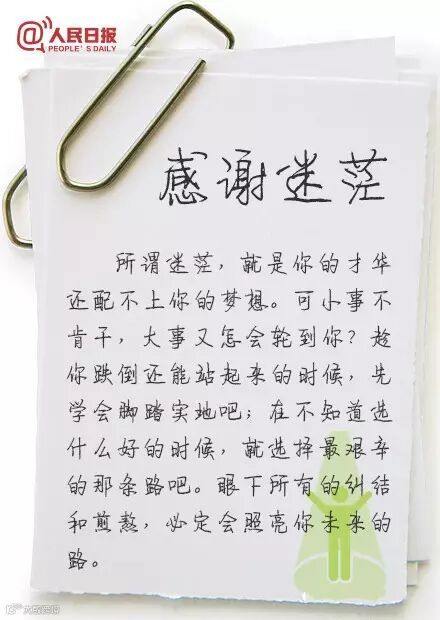 @人民日报
PEOPLE'S DAILY
感谢迷茫
所谓迷茫，就是你的才华
还配不上你的梦想。可小事不
肯干，大事又怎会轮到你？趁
你跌倒还能站起来的时候，先
学会脚踏实地吧；在不知道选
什么好的时候，就选择最艰辛
的那条路吧。眼下所有的纠结
和煎熬，必定会照亮你未来的
路。